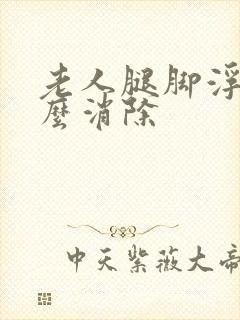 老人腿脚浮
麼消除
中天紫薇大帝